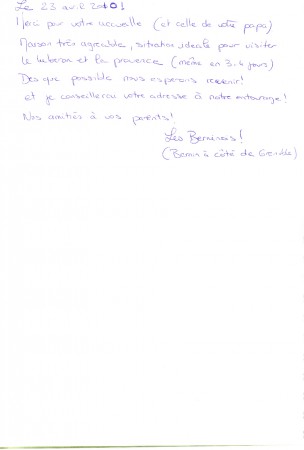 Le 23 avril 2001
Merci pour votre accueille (et celle de votre papa)
Maison très agréable, situation idéale pour visiter
le luberon et la provence (même en 3-4 jours)
Dès que possible nous espérons revenir!
et je conseillerai votre adresse à notre entourage!
Nos amitiés à vos parents!
Les Berninois!
(Bernin à côté de Grenoble)